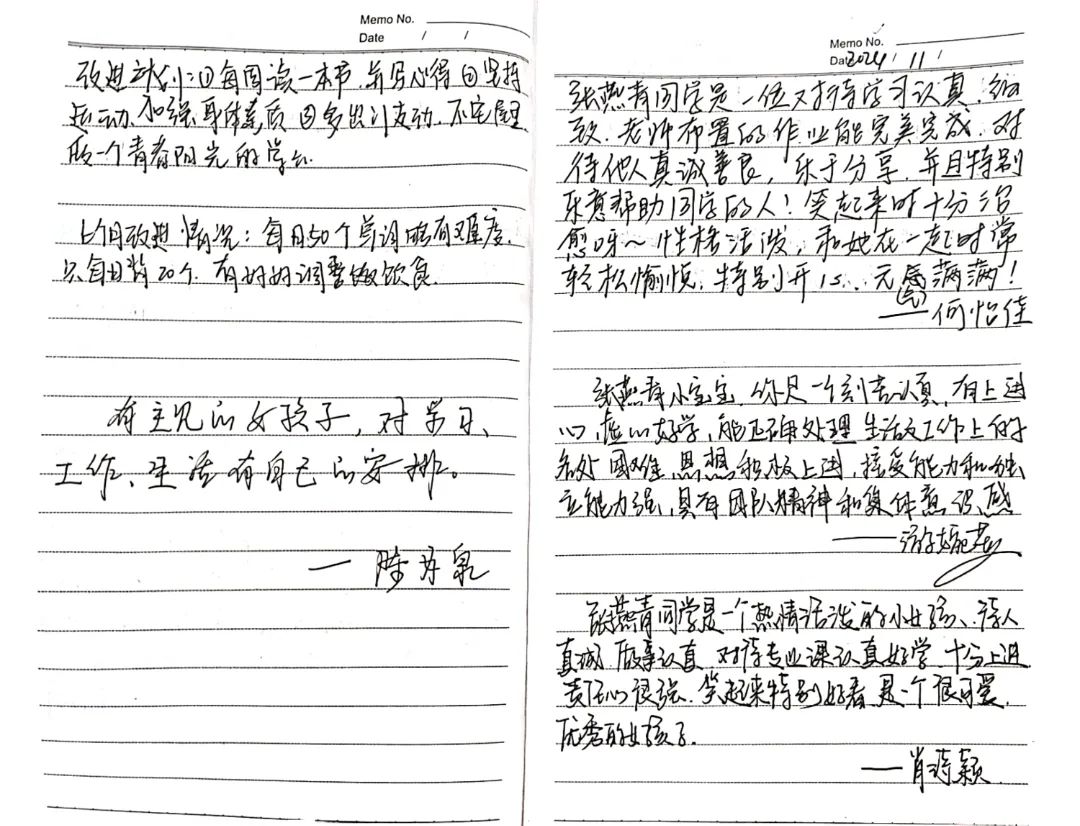 Memo No.
Date / /
改进计划：①每周读一本书，并写心得②坚持
运动、加强身体素质③多出门走动、不宅屋里
做一个青春阳光的学生.
改进情况：每日50个单词略有难度，
只每日背20个. 有好好调整做饮食.
有主见的女孩子，对学习、
工作、生活有自己的安排。
— 陈
Memo No.
Date 2024 / 11 /
张燕青同学是一位对待学习认真、细
致、老师布置的作业能完美完成、对
待他人真诚善良，乐于分享，并且特别
乐意帮助同学的人！笑起来时十分治
愈呀～性格活泼，和她在一起时常
轻松愉悦，特别开心... 元气满满！
——何怡佳
张燕青小宝宝，你是一个刻苦认真，有上进
心，虚心好学，能正确处理生活及工作上的
各处困难，思想积极上进，接受能力和独
立能力强，具有团队精神和集体意识感
——
张燕青同学是一个热情活泼的小女孩、待人
真诚 做事认真 对待专业课认真好学 十分上进
责任心很强. 笑起来特别好看 是一个很可爱，
优秀的女孩子.
——肖诗颖